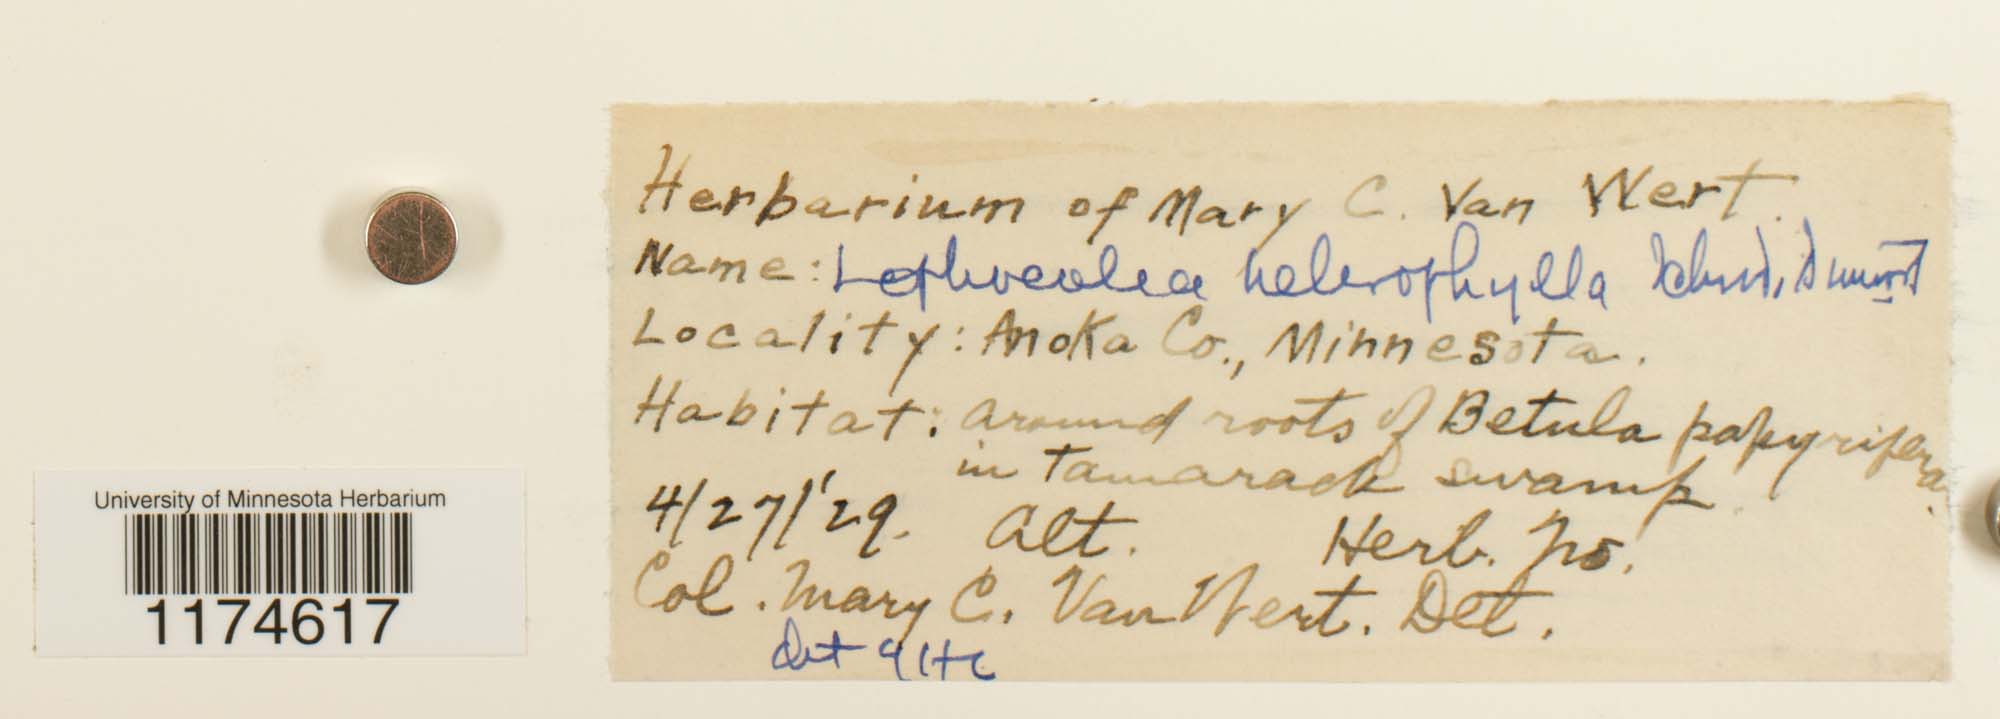 Herbarium of Mary C. Van Wert.
Name: Lophocolea heterophylla Schrad., Dumort
Locality: Anoka Co., Minnesota.
Habitat: around roots of Betula papyrifera
in Tamarack swamp.
4/27/'29. Alt. Herb. No.
Col. Mary C. Van Wert. Det.
det
University of Minnesota Herbarium
1174617